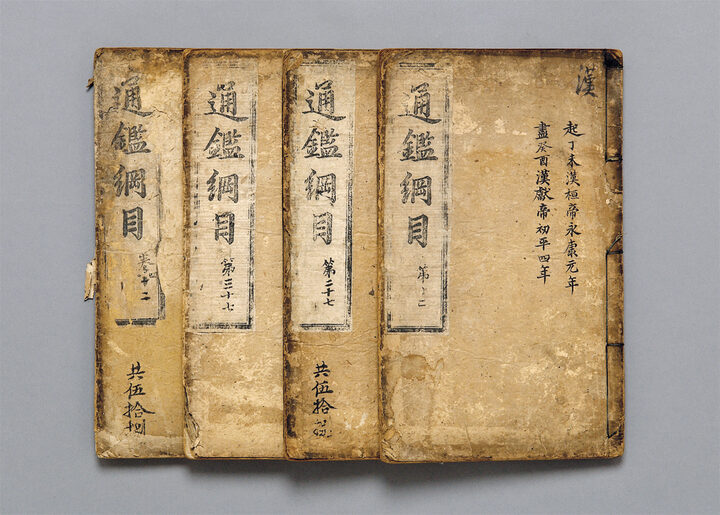 漢
起丁未漢桓帝永康元年
盡癸酉漢獻帝初平四年
通鑑綱目 第十二
通鑑綱目 第二十七
共伍拾
通鑑綱目 第三十七
通鑑綱目 卷十二
共伍拾